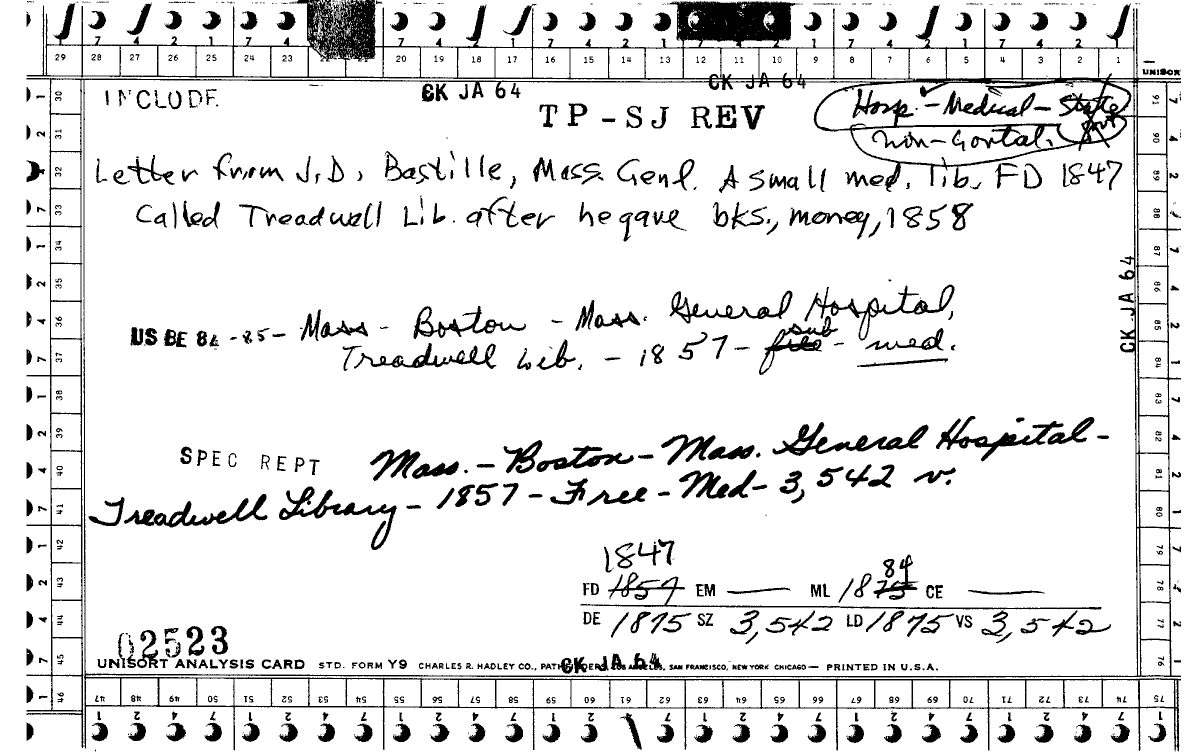 7 4 2 1 7 4 7 4 2 1 7 4 2 1 7 4 2 1 7 4 2 1 7 4 2 1
29 28 27 26 25 24 23 20 19 18 17 16 15 14 13 12 11 10 9 8 7 6 5 4 3 2 1
UNISORT
INCLUDE
CK JA 64
CK JA 64
TP-SJ REV
Hosp. - Medical - State
non-Govtal.
Letter from J.D. Bastille, Mass. Genl. A small med. lib. FD 1847
Called Treadwell Lib. after he gave bks., money, 1858
CK JA 64
US BE 84-85 - Mass - Boston - Mass. General Hospital,
sub
Treadwell Lib. - 1857 - file - med.
SPEC REPT Mass. - Boston - Mass. General Hospital -
Treadwell Library - 1857 - Free - Med - 3,542 v.
1847
84
FD 1857 EM — ML 1875 CE —
DE 1875 SZ 3,542 LD 1875 VS 3,542
02523
CK JA 64
UNISORT ANALYSIS CARD STD. FORM Y9 CHARLES R. HADLEY CO., PATHFINDERS, LOS ANGELES, SAN FRANCISCO, NEW YORK CHICAGO — PRINTED IN U.S.A.
30 31 32 33 34 35 36 37 38 39 40 41 42 43 44 45 46
91 90 89 88 87 86 85 84 83 82 81 80 79 78 77 76
47 48 49 50 51 52 53 54 55 56 57 58 59 60 61 62 63 64 65 66 67 68 69 70 71 72 73 74 75